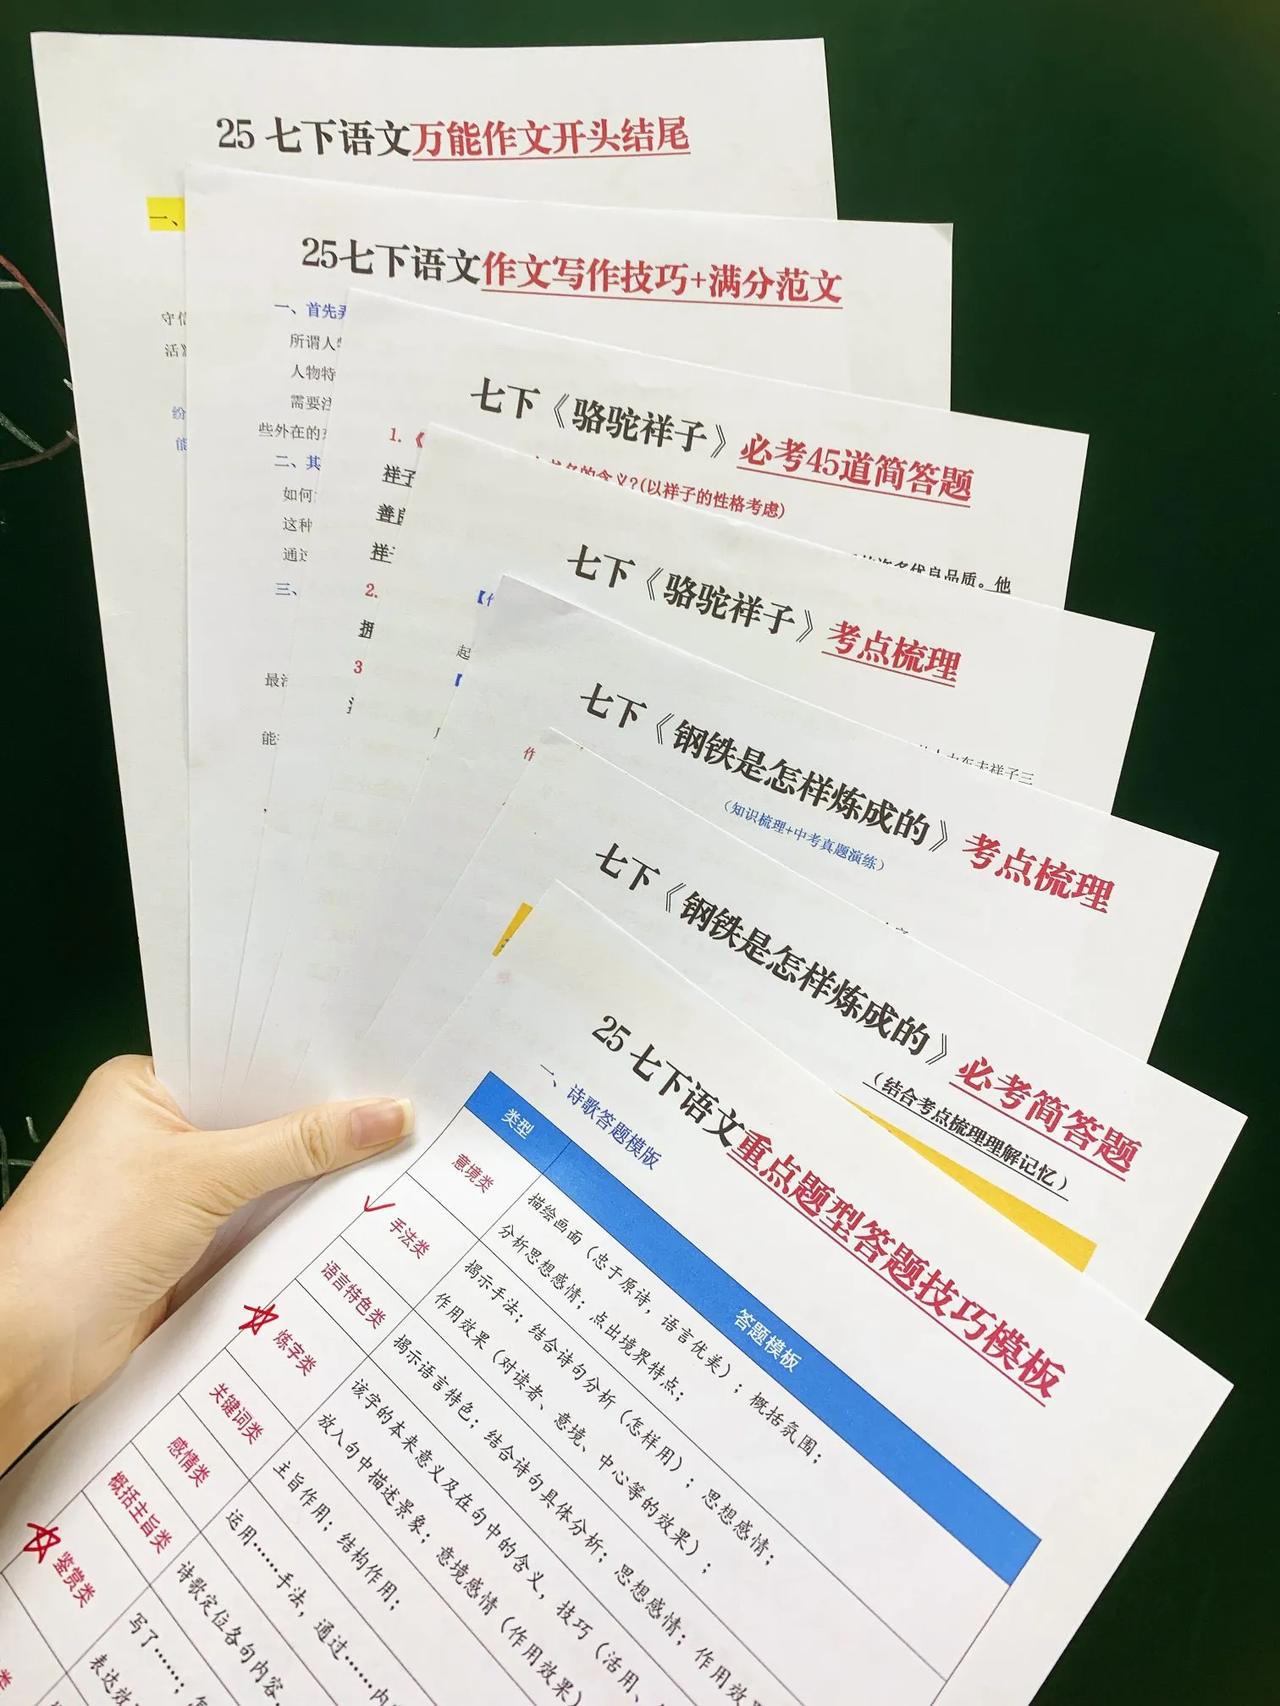 25 七下语文万能作文开头结尾
一、
守信
活
能
25七下语文作文写作技巧+满分范文
一、首先
所谓人
人物特
需要注
些外在的
二、其
如何
这种
通过
三、
能
七下《骆驼祥子》必考45道简答题
1.《
的含义?(以祥子的性格考虑)
祥子
优良品质。他
祥
2.
拥
3
七下《骆驼祥子》考点梳理
起
祥子三
七下《钢铁是怎样炼成的》考点梳理
（知识梳理+中考真题演练）
作
七下《钢铁是怎样炼成的》必考简答题
（结合考点梳理理解记忆）
25 七下语文重点题型答题技巧模板
一、诗歌答题模版
类型 答题模板
意境类 描绘画面（忠于原诗，语言优美）；概括氛围；
分析思想感情；点出境界特点；
手法类 揭示手法；结合诗句分析（怎样用）；思想感情；
作用效果（对读者、意境、中心等的效果）；
语言特色类 揭示语言特色；结合诗句具体分析；思想感情；作用效
炼字类 该字的本来意义及在句中的含义，技巧（活用、
放入句中描述景象；意境感情（作用效果）
关键词类 主旨作用；结构作用；
感情类 运用……手法，通过……内
概括主旨类 诗歌定位各句内容，
鉴赏类 写了……；
表达效
类